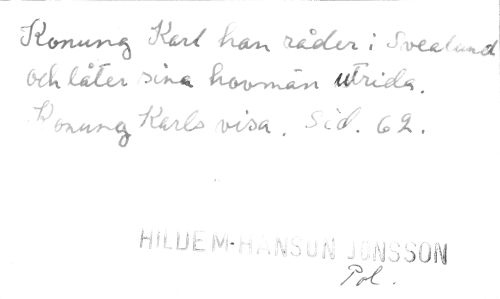 Konung Karl han råder i Svealand
och låter sina hovmän utrida.
Konung Karls visa. Sid. 62.
HILDEM-HANSON JÖNSSON
Pol.